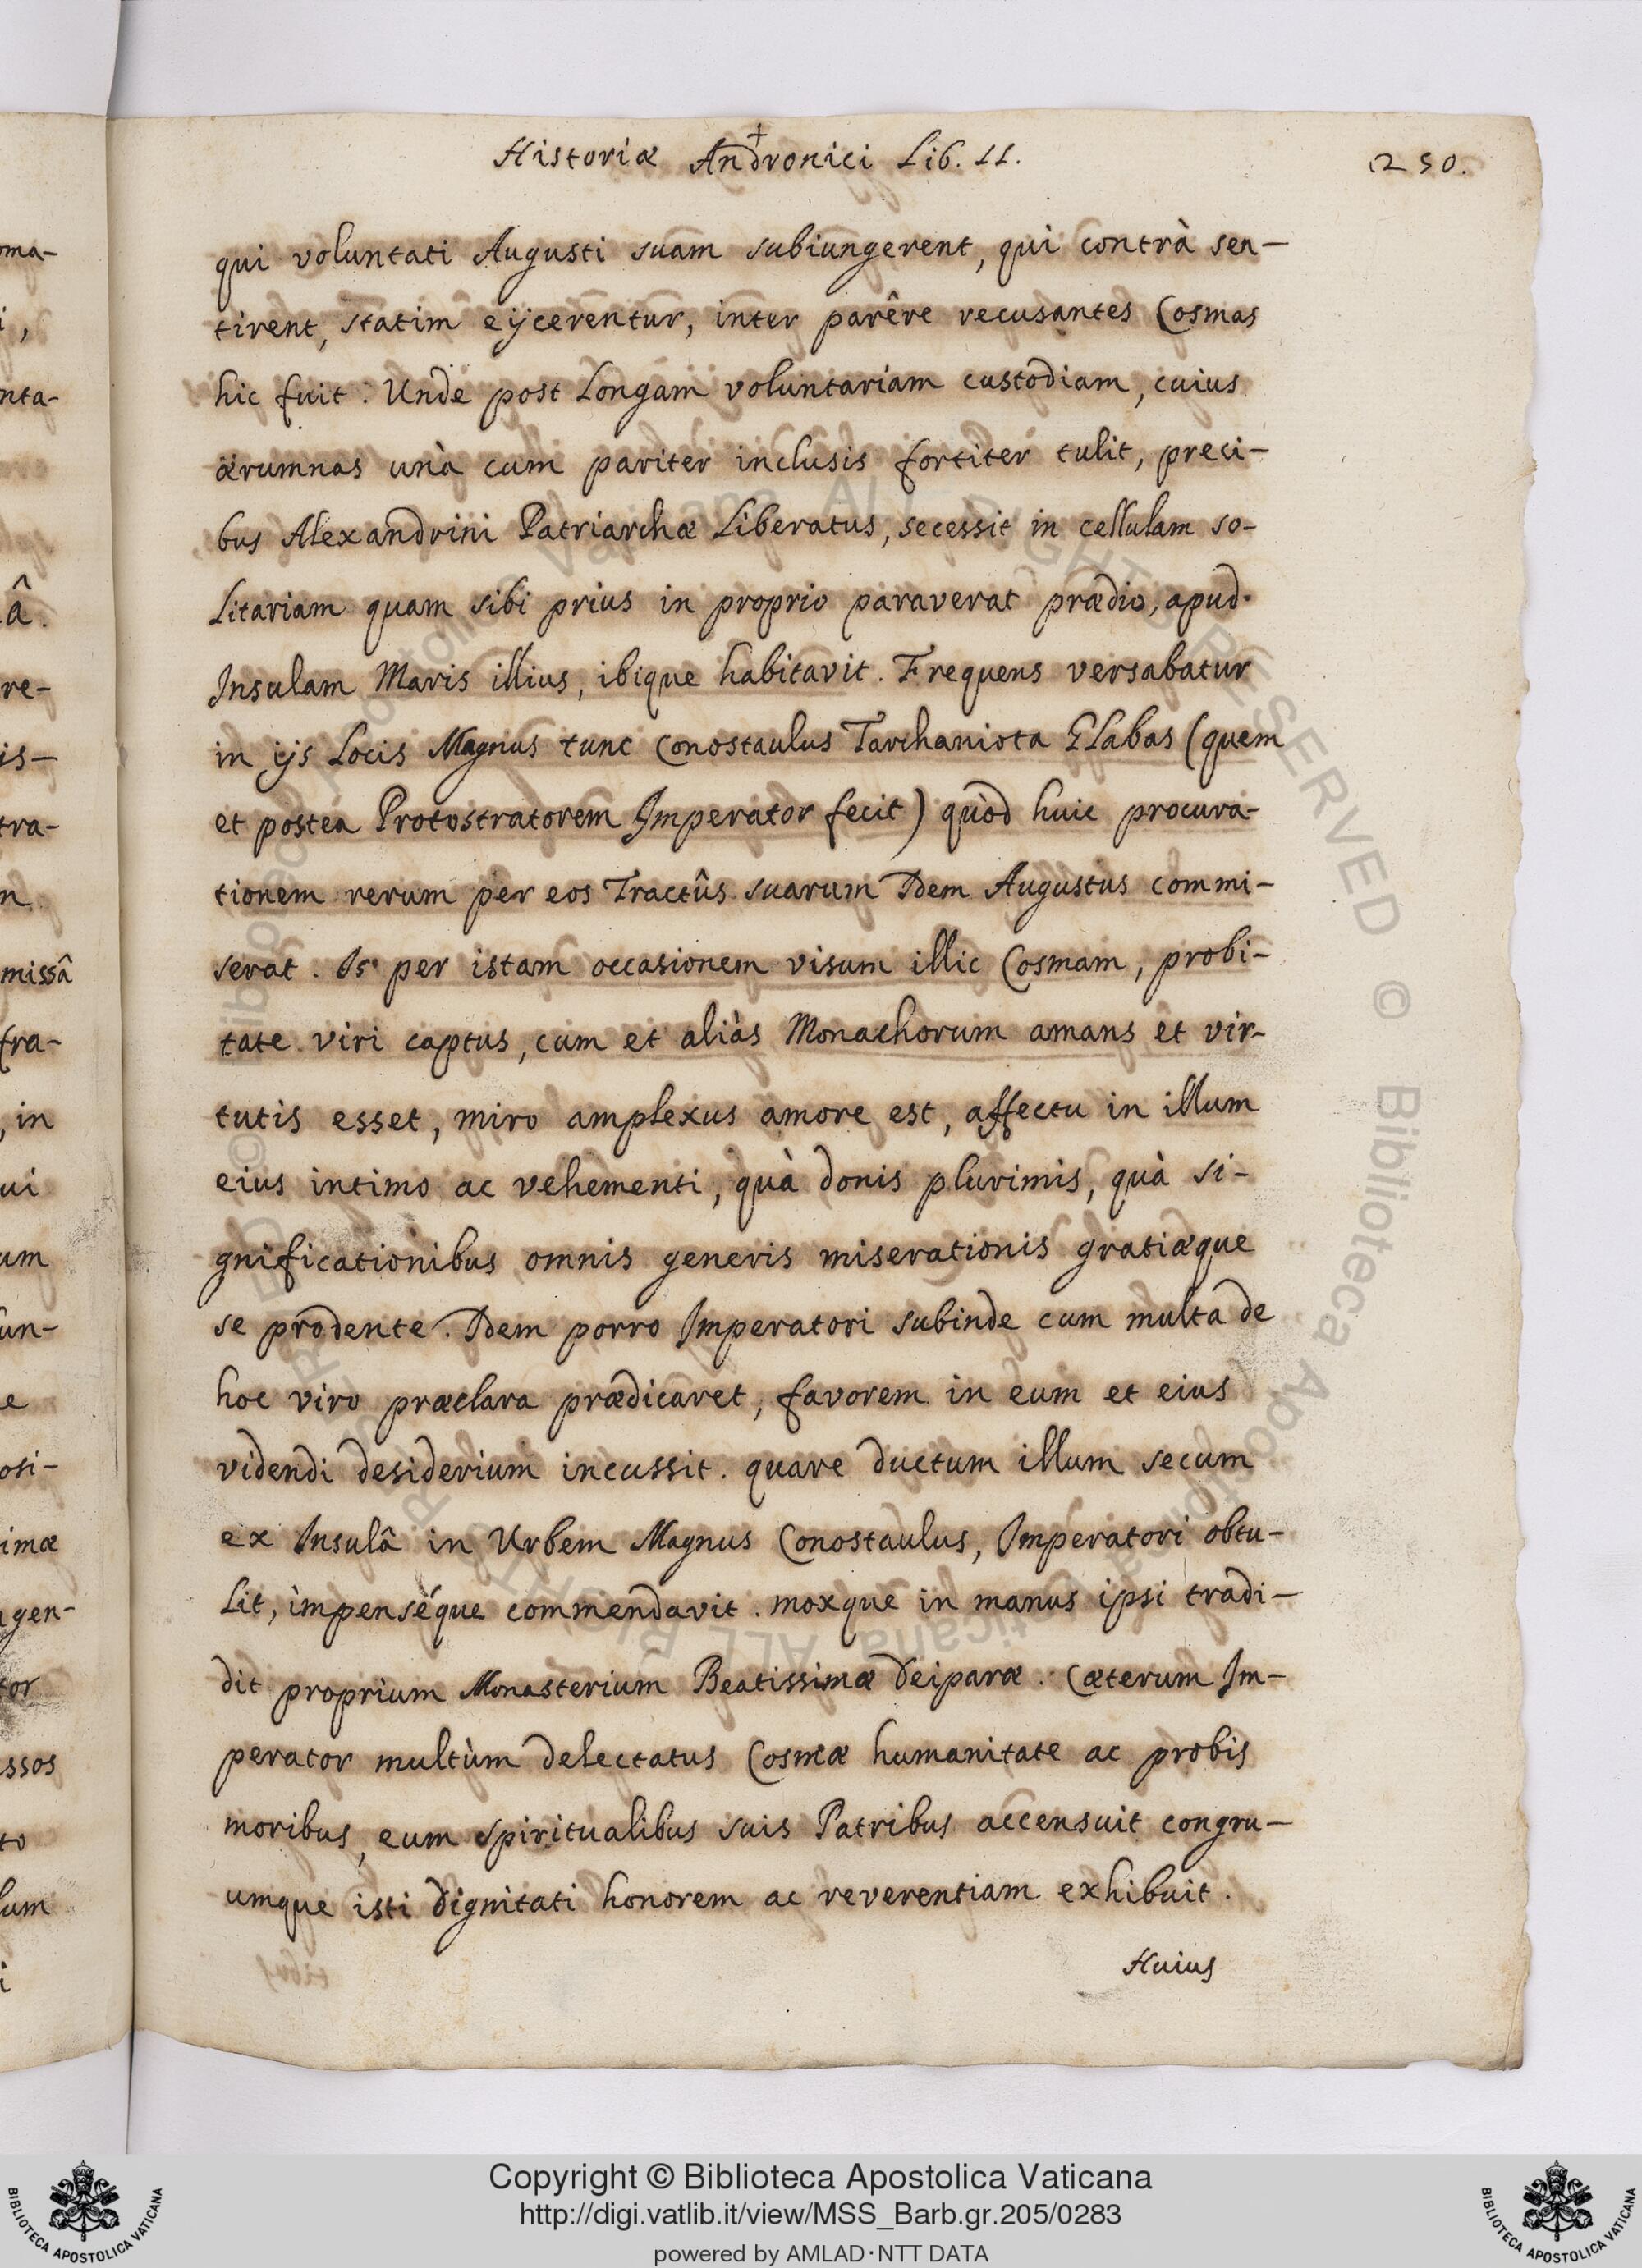 Historiæ Andronici Lib. II.
250.
qui voluntati Augusti suam subiungerent, qui contrà sen-
tirent, statim eijcerentur, inter parêre recusantes Cosmas
hic fuit. Unde post longam voluntariam custodiam, cuius
ærumnas unà cum pariter inclusis fortiter tulit, preci-
bus Alexandrini Patriarchæ liberatus, secessit in cellulam so-
litariam quam sibi prius in proprio paraverat prædio, apud
Insulam Maris illius, ibique habitavit. Frequens versabatur
in ijs locis Magnus tunc Conostaulus Tarchaniota Glabas (quem
et postea Protostratorem Imperator fecit) quòd huic procura-
tionem rerum per eos Tractûs suarum Idem Augustus commi-
serat. Is per istam occasionem visum illic Cosmam, probi-
tate viri captus, cum et aliàs Monachorum amans et vir-
tutis esset, miro amplexus amore est, affectu in illum
eius intimo ac vehementi, quà donis plurimis, quà si-
gnificationibus omnis generis miserationis gratiæque
se prodente. Idem porro Imperatori subinde cum multa de
hoc viro præclara prædicaret, favorem in eum et eius
videndi desiderium incussit. quare ductum illum secum
ex Insulâ in Urbem Magnus Conostaulus, Imperatori obtu-
lit, impenséque commendavit. moxque in manus ipsi tradi-
dit proprium Monasterium Beatissimæ Deiparæ. Cæterum Im-
perator multùm delectatus Cosmæ humanitate ac probis
moribus, eum spiritualibus suis Patribus accensuit congru-
umque isti dignitati honorem ac reverentiam exhibuit.
Huius
Copyright © Biblioteca Apostolica Vaticana
http://digi.vatlib.it/view/MSS_Barb.gr.205/0283
powered by AMLAD·NTT DATA
BIBLIOTECA APOSTOLICA VATICANA
BIBLIOTECA APOSTOLICA VATICANA